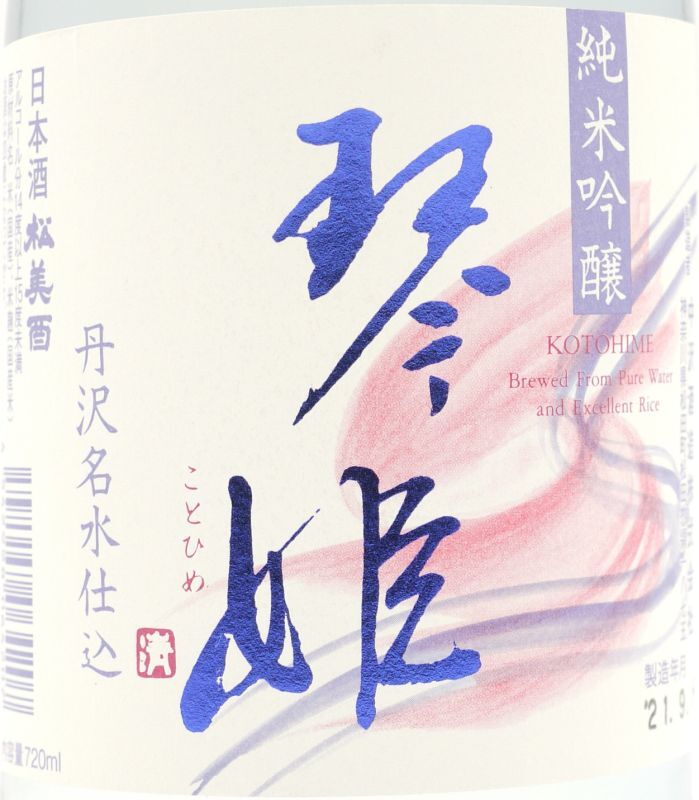 純米吟醸
KOTOHIME
Brewed From Pure Water
and Excellent Rice
琴姫
ことひめ
丹沢名水仕込
日本酒 松美酉
アルコール分14度以上15度未満
原材料名 米(国産)、米麹(国産米)
内容量720ml
製造年月
'21.9.